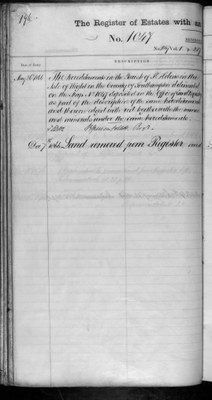 196
The Register of Estates with an
No. 1047
DESCRIPTION
Date of Entry
The hereditaments in the Parish of St. Helens in the
Isle of Wight in the County of Southampton delineated
on the Map No. 1047 deposited in the Office of Land Registry
as part of the description of the same hereditaments
and thereon edged with red together with the mines
and minerals under the same hereditaments
Land removed from Register